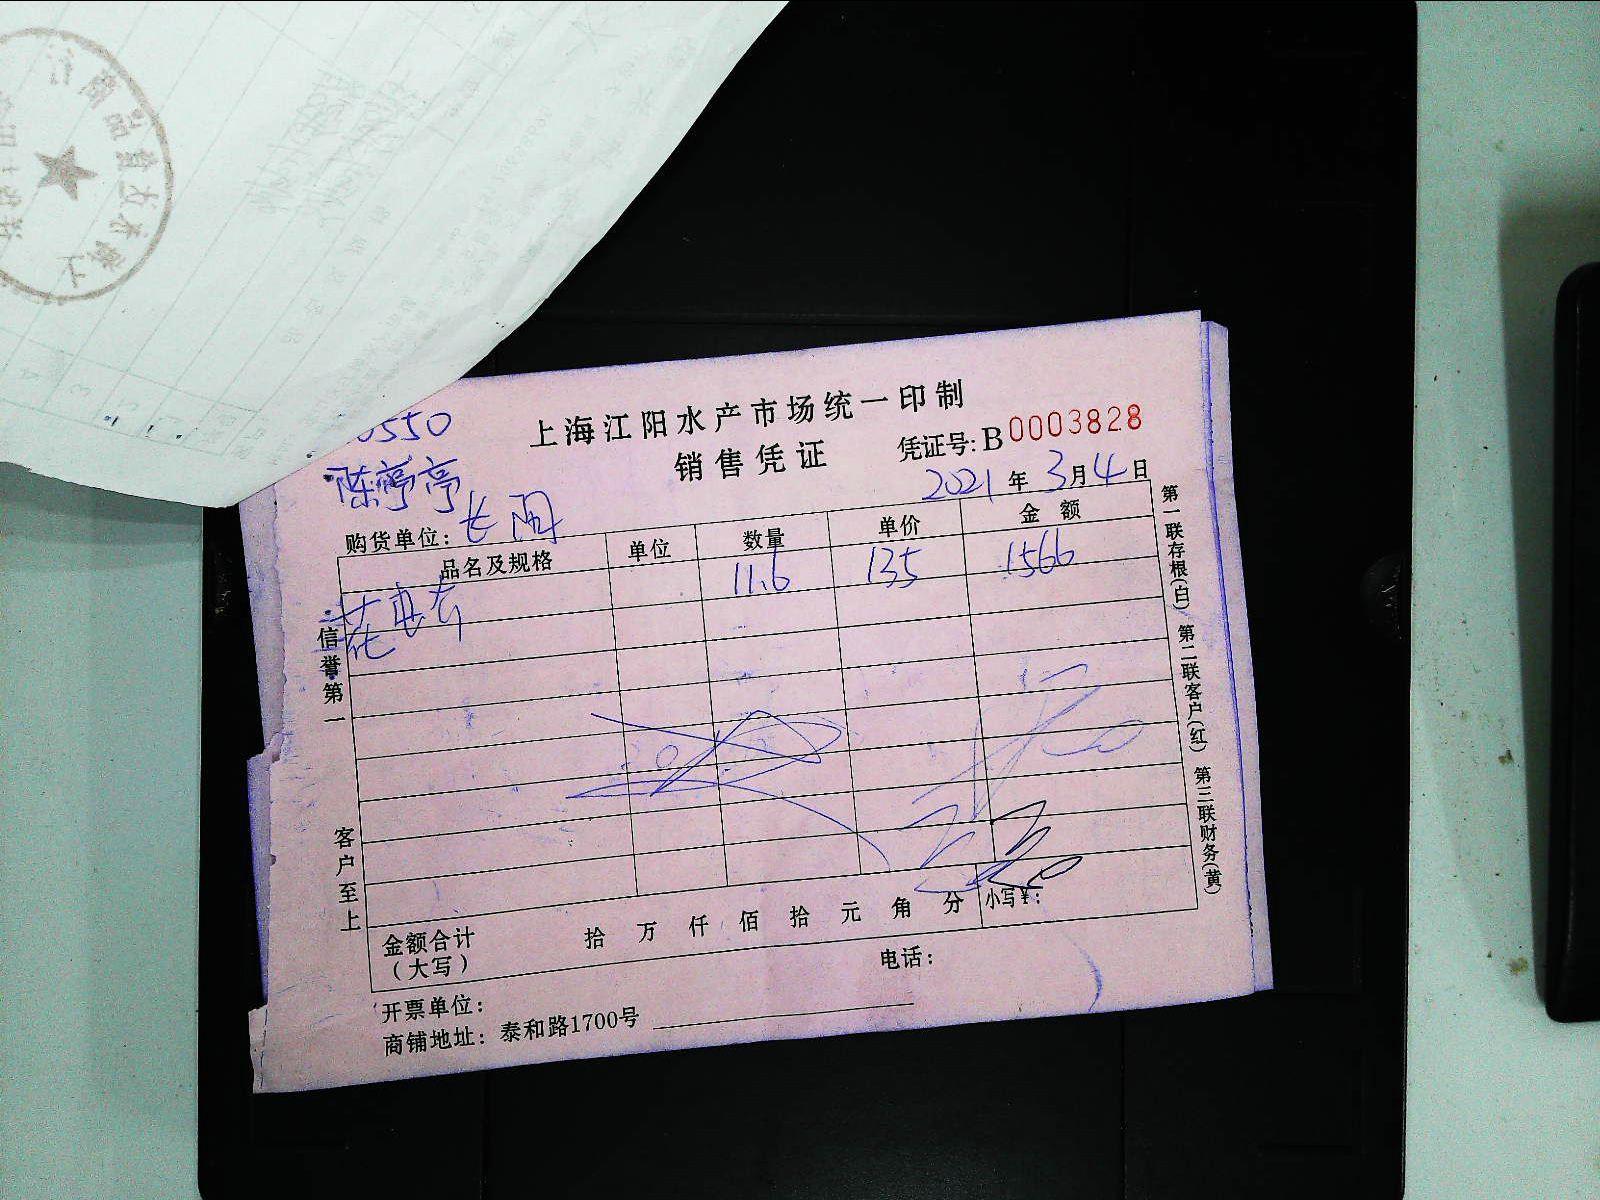 上海江阳水产市场统一印制
销售凭证
凭证号:B0003828
0550
陈婷婷
2021年3月4日
购货单位:长阳
品名及规格 单位 数量 单价 金额
11.6 135 1566
信誉第一
客户至上
金额合计(大写) 拾 万 仟 佰 拾 元 角 分 小写¥:
开票单位: 电话:
商铺地址:泰和路1700号
第一联存根(白) 第二联客户(红) 第三联财务(黄)